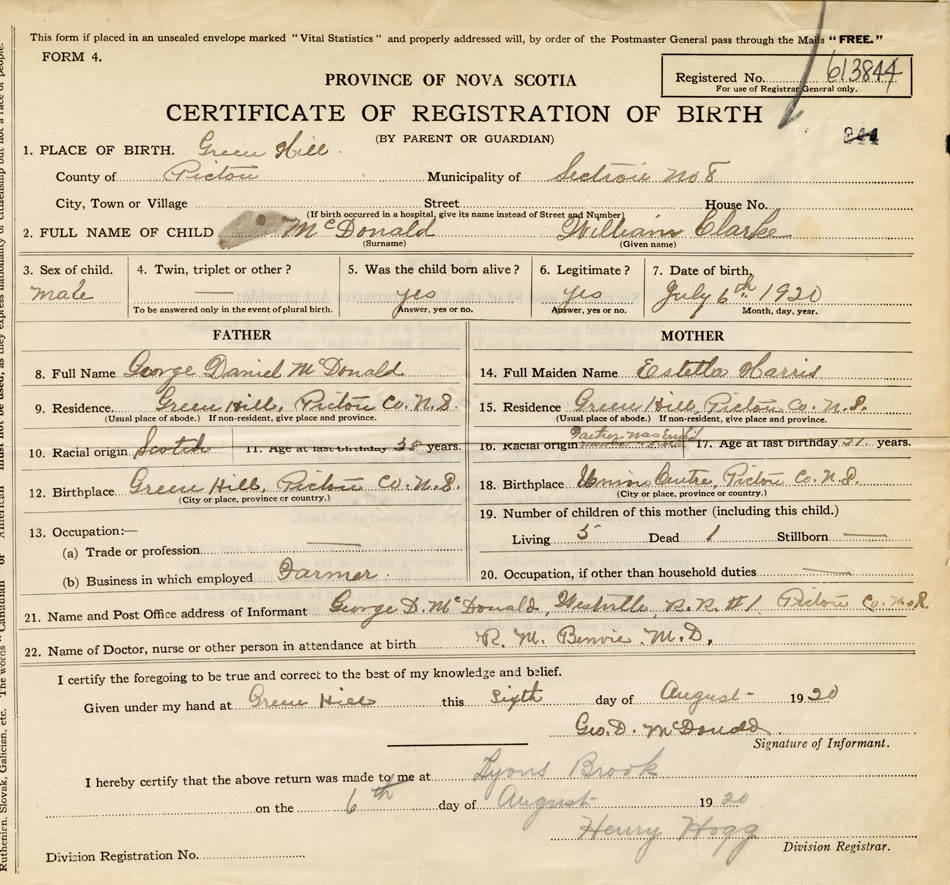 This form if placed in an unsealed envelope marked "Vital Statistics" and properly addressed will, by order of the Postmaster General pass through the Mails "FREE."
FORM 4.
Registered No. 613844
For use of Registrar General only.
PROVINCE OF NOVA SCOTIA
CERTIFICATE OF REGISTRATION OF BIRTH
(BY PARENT OR GUARDIAN)
844
1. PLACE OF BIRTH. Green Hill.
County of Pictou Municipality of Section no 8
City, Town or Village Street House No.
(If birth occurred in a hospital, give its name instead of Street and Number)
2. FULL NAME OF CHILD McDonald William Clarke
(Surname) (Given name)
3. Sex of child. 4. Twin, triplet or other? 5. Was the child born alive? 6. Legitimate? 7. Date of birth,
male — yes yes July 6th 1920
To be answered only in the event of plural birth. Answer, yes or no. Answer, yes or no. Month, day, year.
FATHER MOTHER
8. Full Name George Daniel McDonald
14. Full Maiden Name Estella Harris
9. Residence. Green Hill, Pictou Co. N.S.
15. Residence Green Hill, Pictou Co. N.S.
(Usual place of abode.) If non-resident, give place and province.
(Usual place of abode.) If non-resident, give place and province.
10. Racial origin Scotch 11. Age at last birthday 38 years.
16. Racial origin Father was 17. Age at last birthday years.
12. Birthplace Green Hill, Pictou Co. N.S.
18. Birthplace Union Centre, Pictou Co. N.S.
(City or place, province or country.)
(City or place, province or country.)
13. Occupation:—
19. Number of children of this mother (including this child.)
(a) Trade or profession —
Living 5 Dead 1 Stillborn —
(b) Business in which employed Farmer.
20. Occupation, if other than household duties —
21. Name and Post Office address of Informant George D. McDonald, Westville R.R. #1 Pictou Co. N.S.
22. Name of Doctor, nurse or other person in attendance at birth R. M. Benvie. M.D.
I certify the foregoing to be true and correct to the best of my knowledge and belief.
Given under my hand at Green Hill this Sixth day of August 1920
Geo. D. McDonald
Signature of Informant.
I hereby certify that the above return was made to me at Lyons Brook
on the 6th day of August 1920
Henry Hogg
Division Registrar.
Division Registration No.